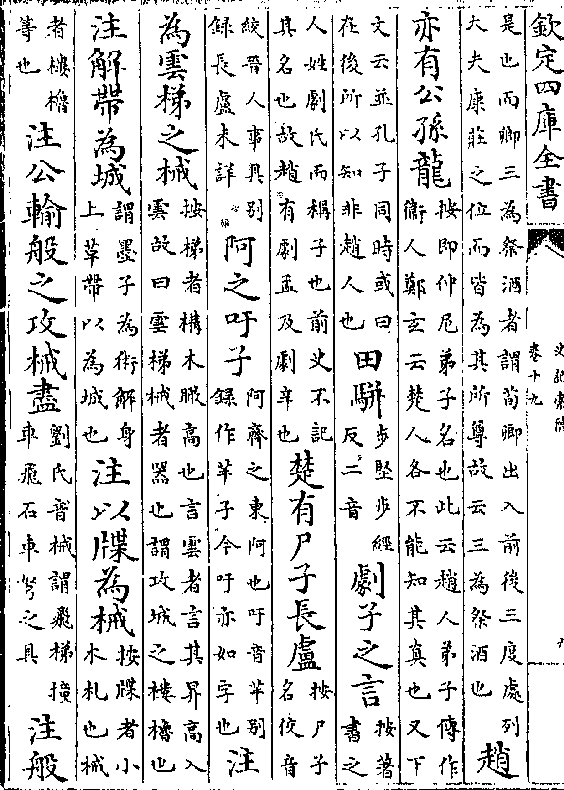 欽定四庫全書
史記索隱
卷十九
是也而卿三為祭酒者謂荀卿出入前後三度處列
大夫康莊之位而皆為其所尊故云三為祭酒也
趙
亦有公孫龍
按即仲尼弟子名也此云趙人弟子傳作
衞人鄭玄云楚人各不能知其真也又下
文云並孔子同時或曰
在後所以知非趙人也
田駢
步堅步經
反二音
劇子之言
按著
書之
人姓劇氏而稱子也前史不記
其名也故趙有劇孟及劇辛也
楚有尸子長盧
按尸子
名佼音
絞晉人事具别
録長盧未詳
阿之吁子
阿齊之東阿也吁音芉别
録作芉子今吁亦如字也
注
為雲梯之械
按梯者構木瞰高也言雲者言其昇高入
雲故曰雲梯械者器也謂攻城之樓櫓也
注解帶為城
謂墨子為術解身
上草帶以為城也
注以牒為械
按牒者小
木札也械
者樓櫓
等也
注公輸般之攻械盡
劉氏音械謂飛梯撞
車飛石車弩之具
注般